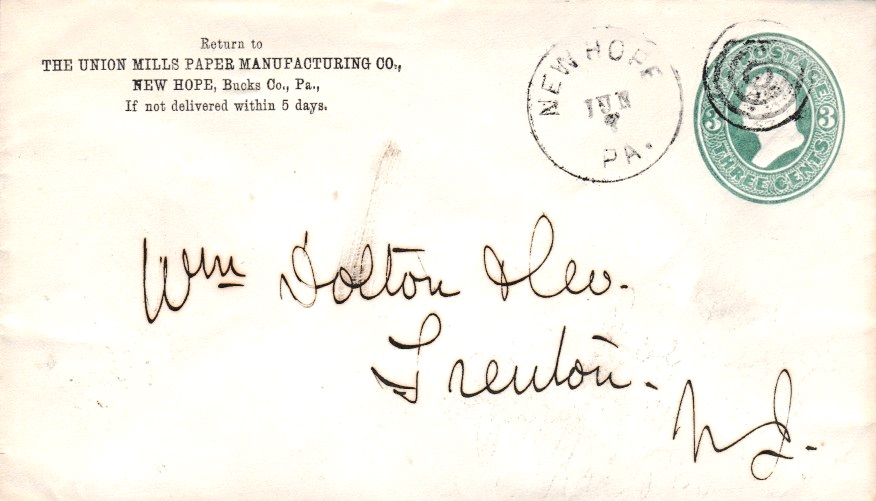 Return to
THE UNION MILLS PAPER MANUFACTURING CO.,
NEW HOPE, Bucks Co., Pa.,
If not delivered within 5 days.
NEW HOPE
JUN
7
PA.
POSTAGE
3 3
THREE CENTS
Wm Dolton & Co.
Trenton.
N J.